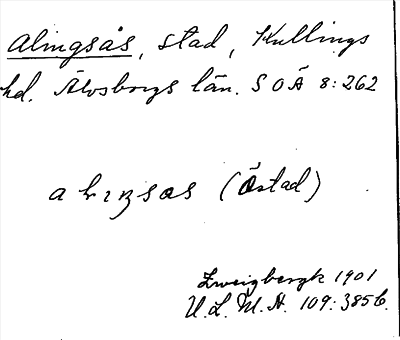 Alingsås, stad, Kullings
hd. Älvsborgs län. SOÄ 8:262
(Östad)
Zweigbergk 1901
U.L.M.A. 109:385 b.